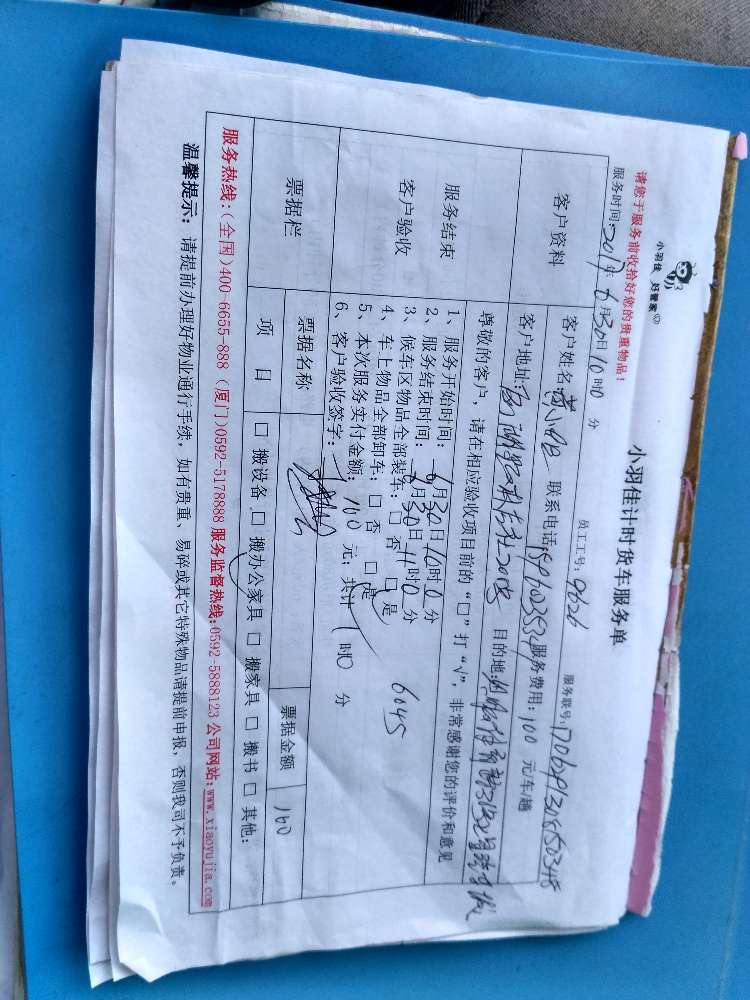 小羽佳 好管家
小羽佳计时货车服务单
请您于服务前收拾好您的贵重物品！
员工工号：9626
服务联号：
服务时间：2017年6月30日10时0分
客户资料
客户姓名： 联系电话： 服务费用：100元/车/趟
客户地址： 目的地：
尊敬的客户，请在相应验收项目前的“□”打“√”，非常感谢您的评价和意见
服务结束
客户验收
1、服务开始时间：6月30日10时0分
2、服务结束时间：6月30日11时0分
3、候车区物品全部装车：□否 □是
4、车上物品全部卸车：□否 □是
6045
5、本次服务实付金额：160元；共计1时0分
6、客户验收签字：
票据栏
票据名称
票据金额
160
项目
□搬设备 □搬办公家具 □搬家具 □搬书 □其他：
服务热线：(全国)400-6655-888 (厦门)0592-5178888 服务监督热线：0592-5888123 公司网站：www.xiaoyujia.com
温馨提示：请提前办理好物业通行手续，如有贵重、易碎或其它特殊物品请提前申报，否则我司不予负责。